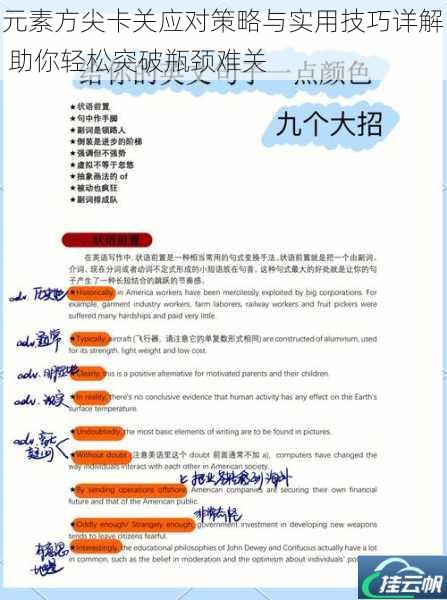 元素方尖卡关应对策略与实用技巧详解
助你轻松突破瓶颈难关
给你的英文句子一点颜色
九个大招
★状语前置
★句中作手脚
★副词是领路人
★倒装是进步的阶梯
★强调但不强势
★虚拟不等于忽悠
★抽象画法的 of
★被动也疯狂
★副词排成队
一、状语前置
在英语写作中,状语前置是一种相当常用的句式变换手法。状语前置就是把一个由副词、
介词、现在分词或者动词不定式形成的小短语放在句首。这种句式最大的好处就是让你的句
子产生了一种长短结合的跳跃的节奏感。
★Historically, in America workers have been mercilessly exploited by big corporations. For
example, garment industry workers, farm laborers, railway workers and fruit pickers were
suffered many hardships and paid very little.
adv. 通常
★Typically, aircraft (飞行器,请注意它的单复数形式相同) are constructed of aluminum, used
for its strength, light weight and low cost.
★Clearly, this is a positive alternative for motivated parents and their children.
adv. 现实
★In reality, there's no conclusive evidence that human activity has any effect on the Earth's
surface temperature.
★Undoubtedly, the most basic elements of writing are to be found in pictures.
★Without doubt (注意美语里这个 doubt 前面通常不加 a), computers have changed the
way individuals interact with each other in American society.
★By sending operations offshore, American companies are securing their own financial
future and that of the American Public.
★Oddly enough/ Strangely enough, government investment in developing new weapons
tends to leave citizens fearful.
有意思地是
★Interestingly, the educational philosophies of John Dewey and Confucius actually have a lot
in common, such as the belief in moderation and the optimism about individuals'
挂云帆